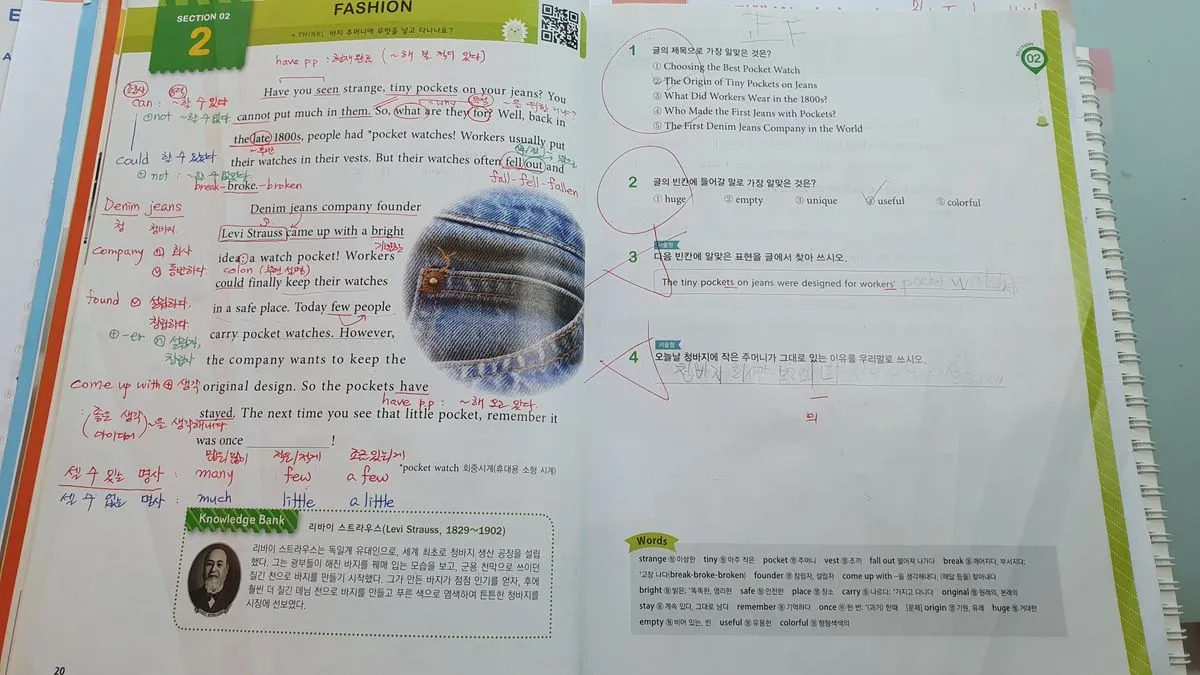 SECTION 02
2
FASHION
• THINK! 바지 주머니에 무엇을 넣고 다니나요?
have pp : 현재완료 (~해 본 적이 있다)
Have you seen strange, tiny pockets on your jeans? You
can : ~할 수 있다
cannot put much in them. So, what are they for? Well, back in
⊕not ~할 수 없다
the late 1800s, people had *pocket watches! Workers usually put
~후반
could 할 수 있었다
their watches in their vests. But their watches often fell out and
⊕not : ~할 수 없었다
fall-fell-fallen
break-broke-broken
broke.
Denim jeans
Denim jeans company founder
청 청바지
Levi Strauss came up with a bright
기발한
company ⓝ 회사
idea: a watch pocket! Workers
ⓥ 동반하다.
colon (부연 설명)
could finally keep their watches
found ⓥ 설립하다.
in a safe place. Today few people
창립하다
⊕ -er ⓝ 설립자,
carry pocket watches. However,
창립자
the company wants to keep the
come up with ⊕ 생각
original design. So the pockets have
have p.p : ~해 오고 있다.
(좋은 생각 아이디어) ~을 생각해내다
stayed. The next time you see that little pocket, remember it
was once ____________ !
셀 수 있는 명사 : many few a few
*pocket watch 회중시계(휴대용 소형 시계)
셀 수 없는 명사 : much little a little
Knowledge Bank
리바이 스트라우스(Levi Strauss, 1829~1902)
리바이 스트라우스는 독일계 유대인으로, 세계 최초로 청바지 생산 공장을 설립
했다. 그는 광부들이 해진 바지를 꿰매 입는 모습을 보고, 군용 천막으로 쓰이던
질긴 천으로 바지를 만들기 시작했다. 그가 만든 바지가 점점 인기를 얻자, 후에
훨씬 더 질긴 데님 천으로 바지를 만들고 푸른 색으로 염색하여 튼튼한 청바지를
시장에 선보였다.
20
SECTION
02
1 글의 제목으로 가장 알맞은 것은?
① Choosing the Best Pocket Watch
② The Origin of Tiny Pockets on Jeans
③ What Did Workers Wear in the 1800s?
④ Who Made the First Jeans with Pockets?
⑤ The First Denim Jeans Company in the World
2 글의 빈칸에 들어갈 말로 가장 알맞은 것은?
① huge ② empty ③ unique ④ useful ⑤ colorful
서술형
3 다음 빈칸에 알맞은 표현을 글에서 찾아 쓰시오.
The tiny pockets on jeans were designed for workers' pocket watches
서술형
4 오늘날 청바지에 작은 주머니가 그대로 있는 이유를 우리말로 쓰시오.
청바지 회사가
Words
strange ⓗ 이상한 tiny ⓗ 아주 작은 pocket ⓜ 주머니 vest ⓜ 조끼 fall out 떨어져 나가다 break ⓓ 깨어지다, 부서지다;
*고장 나다(break-broke-broken) founder ⓜ 창립자, 설립자 come up with ~을 생각해내다, (해답 등을) 찾아내다
bright ⓗ 밝은; *똑똑한, 영리한 safe ⓗ 안전한 place ⓜ 장소 carry ⓓ 나르다; *가지고 다니다 original ⓗ 원래의, 본래의
stay ⓓ 계속 있다, 그대로 남다 remember ⓓ 기억하다 once ⓑ 한 번; *(과거) 한때 [문제] origin ⓜ 기원, 유래 huge ⓗ 거대한
empty ⓗ 비어 있는, 빈 useful ⓗ 유용한 colorful ⓗ 형형색색의